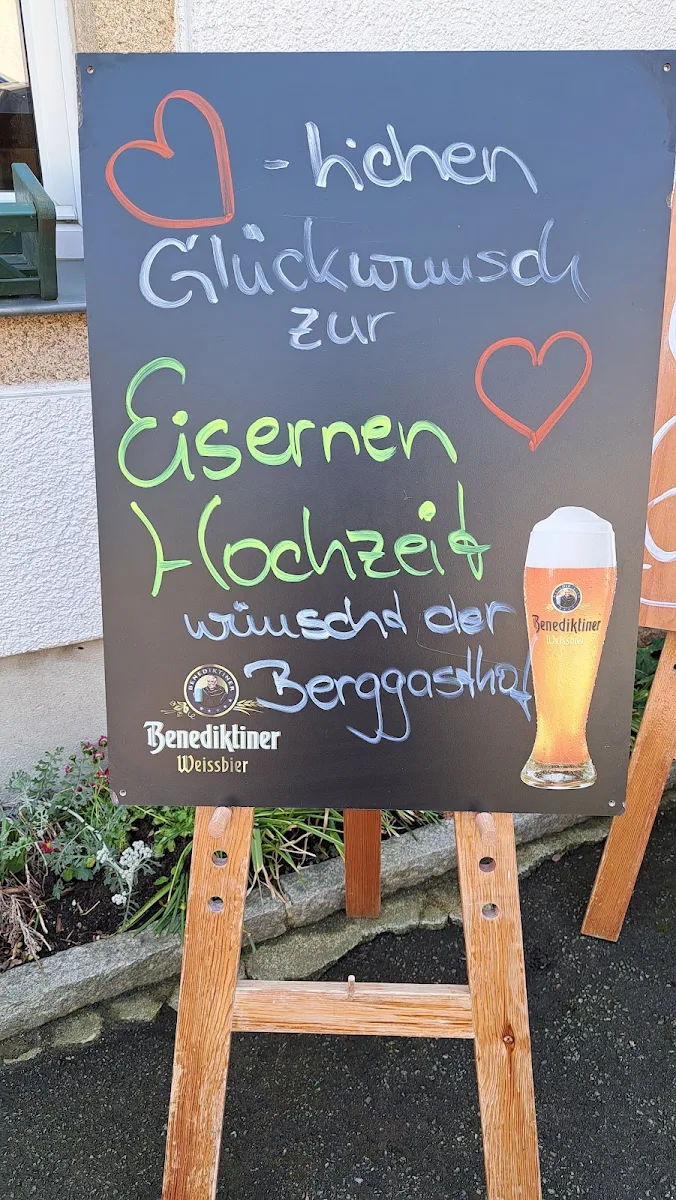 - lichen
Glückwunsch
zur
Eisernen
Hochzeit
wünscht der
Berggasthof
BENEDIKTINER
Benediktiner
Weissbier
Benediktiner
Weissbier